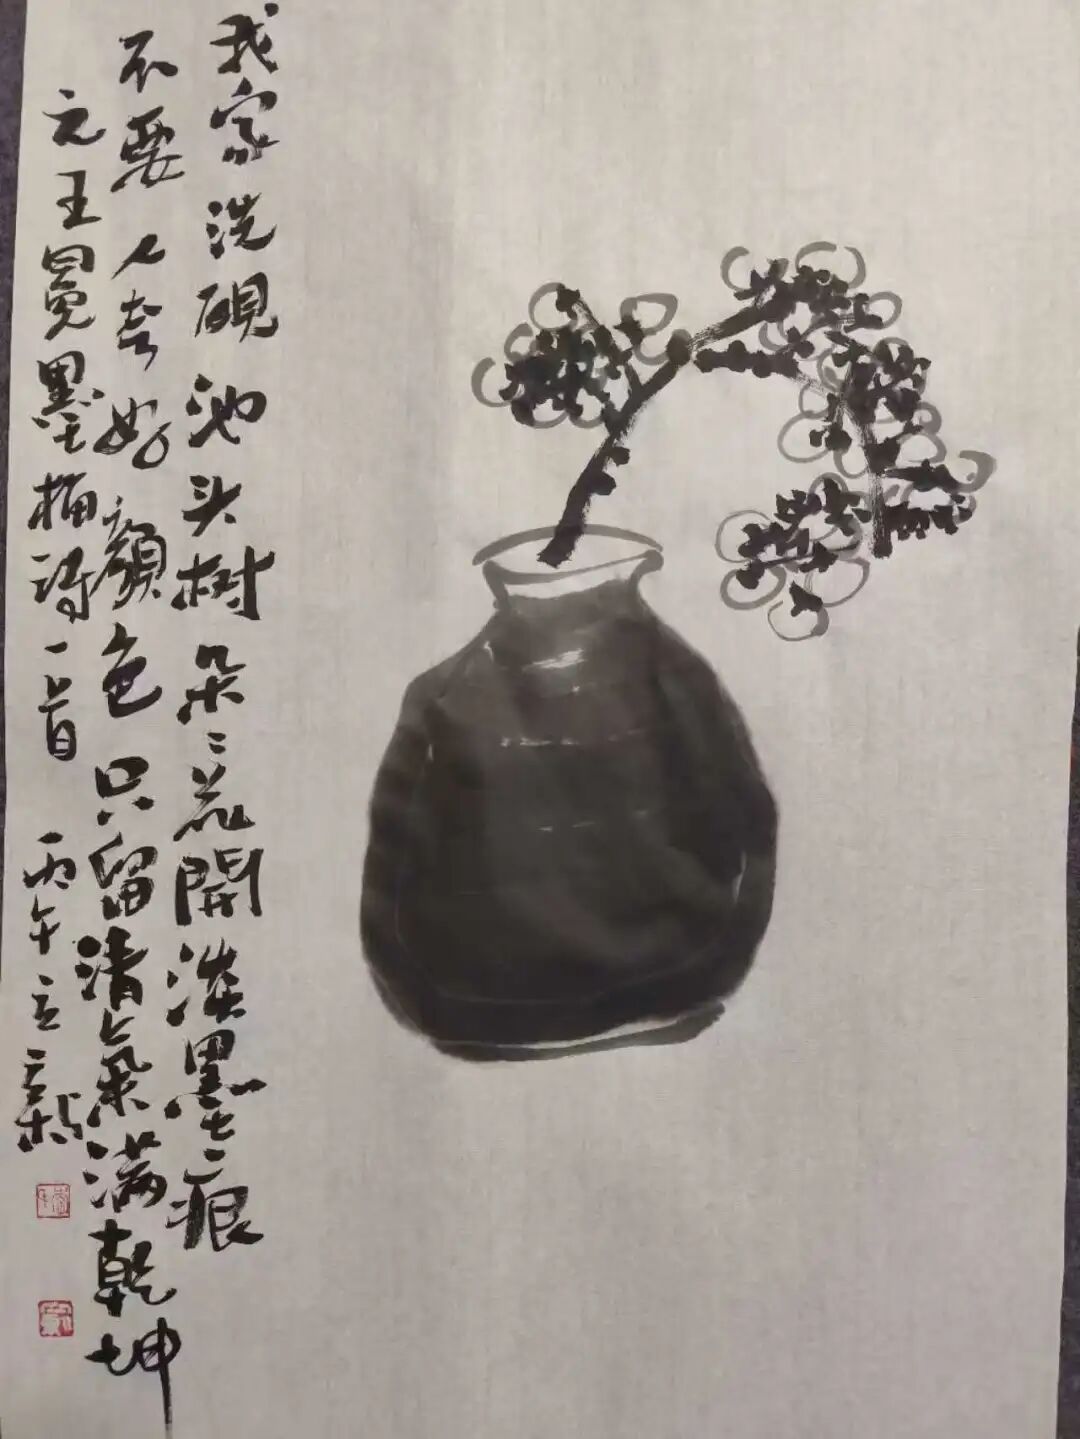 我家洗砚池头树朵〻荒開淡墨痕
不要人夸好顔色只留清氣满乾坤
元王冕墨梅诗一首 丙午立